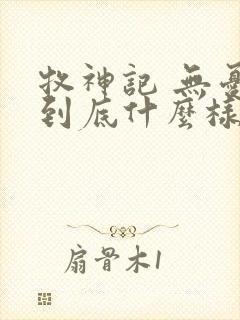 牧神記 無憂
到底什麼樣
扇骨木1